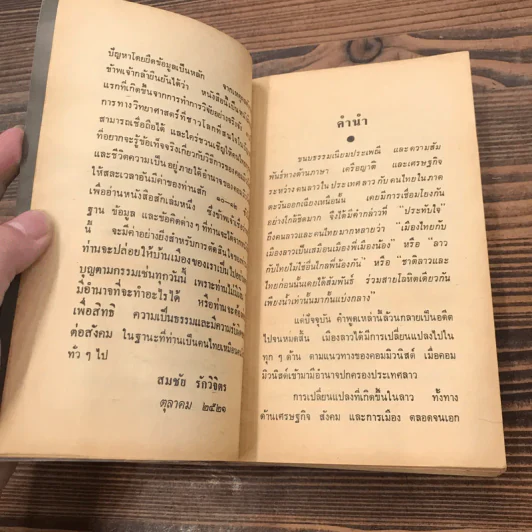 ปัญหาโดยยึดข้อมูลเป็นหลัก
ข้าพเจ้ากล้ายืนยันได้ว่า หนังสือนี้เป็น
แรกที่เกิดขึ้นจากการทำการวิจัยอย่างจริงจัง
การทางวิทยาศาสตร์ที่ชาวโลกที่สนใจใน
สามารถเชื่อถือได้ และใคร่ชวนเชิญให้คน
ที่อยากจะรู้ข้อเท็จจริงเกี่ยวกับวิธีการของ
และชีวิตความเป็นอยู่ภายใต้อำนาจของ
ให้สละเวลาอันมีค่าของท่านสัก ๑๐-๑๒
เพื่ออ่านหนังสือสักเล่มหนึ่ง ซึ่งข้าพเจ้าหวัง
ฐาน ข้อมูล และข้อคิดต่าง ๆ ที่ท่านจะได้จาก
นี้ จะมีค่าอย่างยิ่งสำหรับการตัดสินใจของ
ท่านจะปล่อยให้บ้านเมืองของเราเป็นไป
บุญตามกรรมเช่นทุกวันนี้ เพราะท่านไม่
มีอำนาจที่จะทำอะไรได้ หรือท่านจะต้อง
เพื่อสิทธิ ความเป็นธรรมและความรับผิด
ต่อสังคม ในฐานะที่ท่านเป็นคนไทยเหมือน
ทั่ว ๆ ไป
สมชัย รักวิจิตร
ตุลาคม ๒๕๒๑
คำนำ
ขนบธรรมเนียมประเพณี และความสัม
พันธ์ทางด้านภาษา เครือญาติ และเศรษฐกิจ
ระหว่างคนลาวในประเทศลาวกับคนไทยในภาค
ตะวันออกเฉียงเหนือนั้น เคยมีการเชื่อมโยงกัน
อย่างใกล้ชิดมาก จึงได้มีคำกล่าวที่ "ประทับใจ"
ถึงคนลาวและคนไทยมากหลายว่า "เมืองไทยกับ
เมืองลาวเป็นเสมือนเมืองพี่เมืองน้อง" หรือ "ลาว
กับไทยไม่ใช่อื่นไกลพี่น้องกัน" หรือ "ชาติลาวและ
ไทยก่อนนั้นเคยได้สัมพันธ์ ร่วมสายโลหิตเดียวกัน
เพียงน้ำเท่านั้นมากั้นแบ่งกลาง"
แต่ปัจจุบัน คำพูดเหล่าแล้วนกลายเป็นอดีต
ไปจนหมดสิ้น เมืองลาวได้มีการเปลี่ยนแปลงไปใน
ทุก ๆ ด้าน ตามแนวทางของคอมมิวนิสต์ เมื่อคอม
มิวนิสต์เข้ามามีอำนาจปกครองประเทศลาว
การเปลี่ยนแปลงที่เกิดขึ้นในลาว ทั้งทาง
ด้านเศรษฐกิจ สังคม และการเมือง ตลอดจนเอก